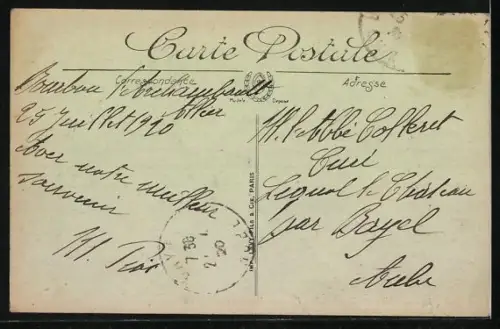 Carte Postale
Correspondance
Adresse
Modèle Déposé
Bourbon l'Archambault
Allier
25 Juillet 1920
Avec notre meilleur
souvenir
M.
M. l'Abbé
Curé
le Château
par Bayel
Aube
7 30
20
& CIE, PARIS